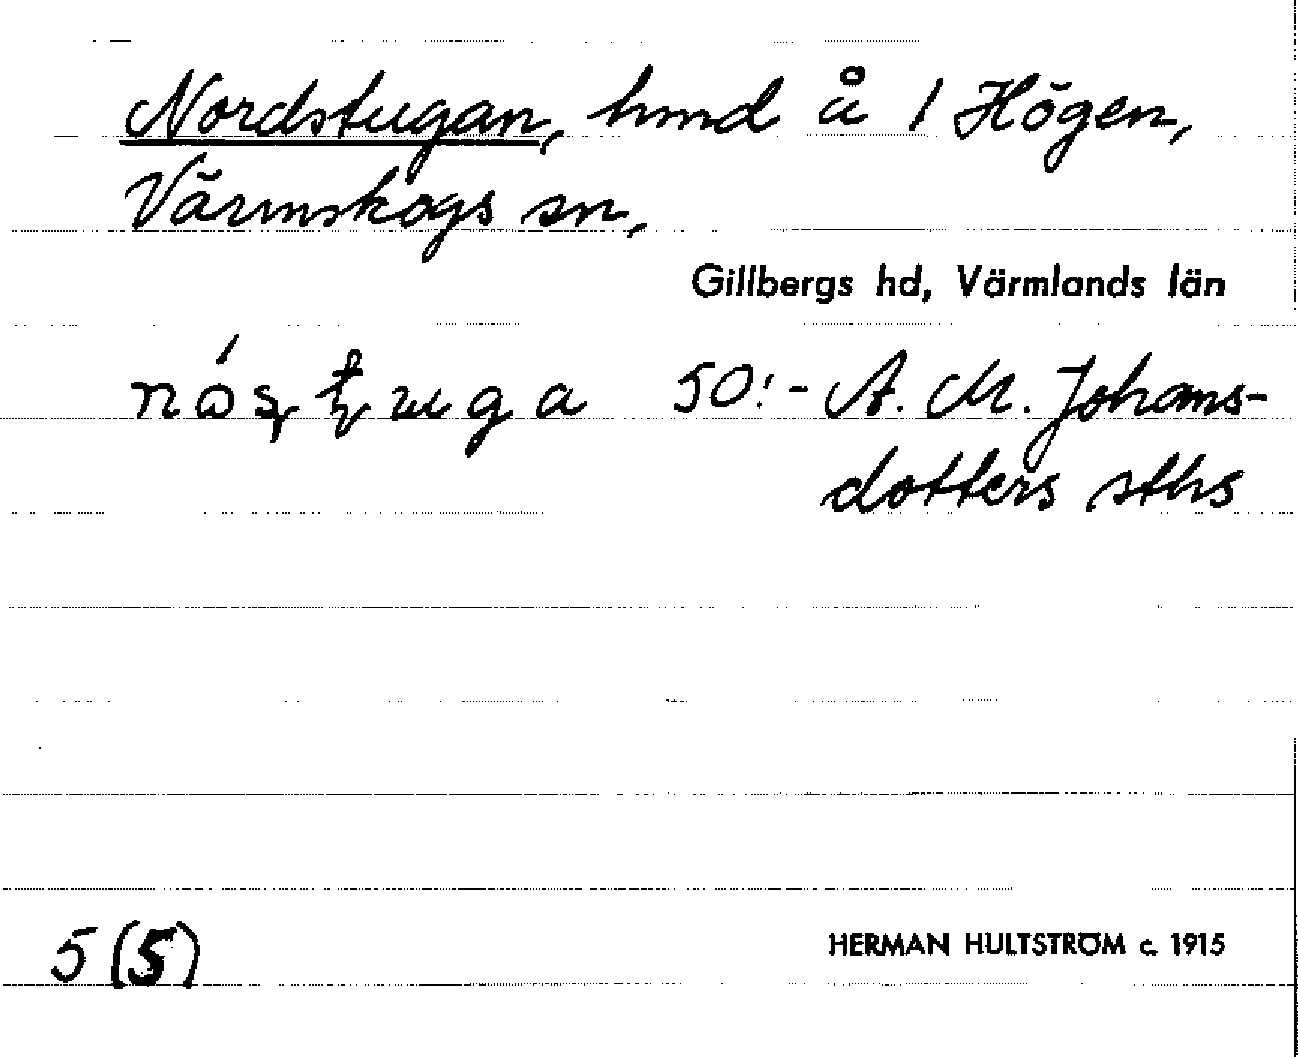 Nordstugan, hmd å 1 Högen,
Värmskogs sn,
Gillbergs hd, Värmlands län
nós̨t̨uga 50:- A. M. Johans-
dotters sths
5 (5)
HERMAN HULTSTRÖM c. 1915